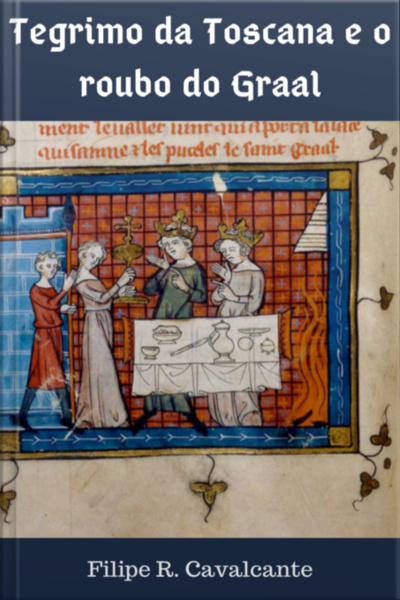 Tegrimo da Toscana e o
roubo do Graal
ment le uallet uint qui aporta la
qui les puceles le saint graal
Filipe R. Cavalcante